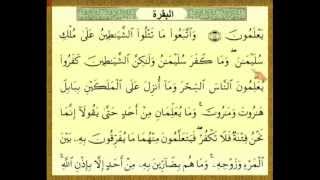 البقرة
يَعْلَمُونَ ۝ وَٱتَّبَعُوا۟ مَا تَتْلُوا۟ ٱلشَّيَـٰطِينُ عَلَىٰ مُلْكِ
سُلَيْمَـٰنَ ۖ وَمَا كَفَرَ سُلَيْمَـٰنُ وَلَـٰكِنَّ ٱلشَّيَـٰطِينَ كَفَرُوا۟
يُعَلِّمُونَ ٱلنَّاسَ ٱلسِّحْرَ وَمَآ أُنزِلَ عَلَى ٱلْمَلَكَيْنِ بِبَابِلَ
هَـٰرُوتَ وَمَـٰرُوتَ ۚ وَمَا يُعَلِّمَانِ مِنْ أَحَدٍ حَتَّىٰ يَقُولَآ إِنَّمَا
نَحْنُ فِتْنَةٌ فَلَا تَكْفُرْ ۖ فَيَتَعَلَّمُونَ مِنْهُمَا مَا يُفَرِّقُونَ بِهِۦ بَيْنَ
ٱلْمَرْءِ وَزَوْجِهِۦ ۚ وَمَا هُم بِضَآرِّينَ بِهِۦ مِنْ أَحَدٍ إِلَّا بِإِذْنِ ٱللَّهِ ۚ